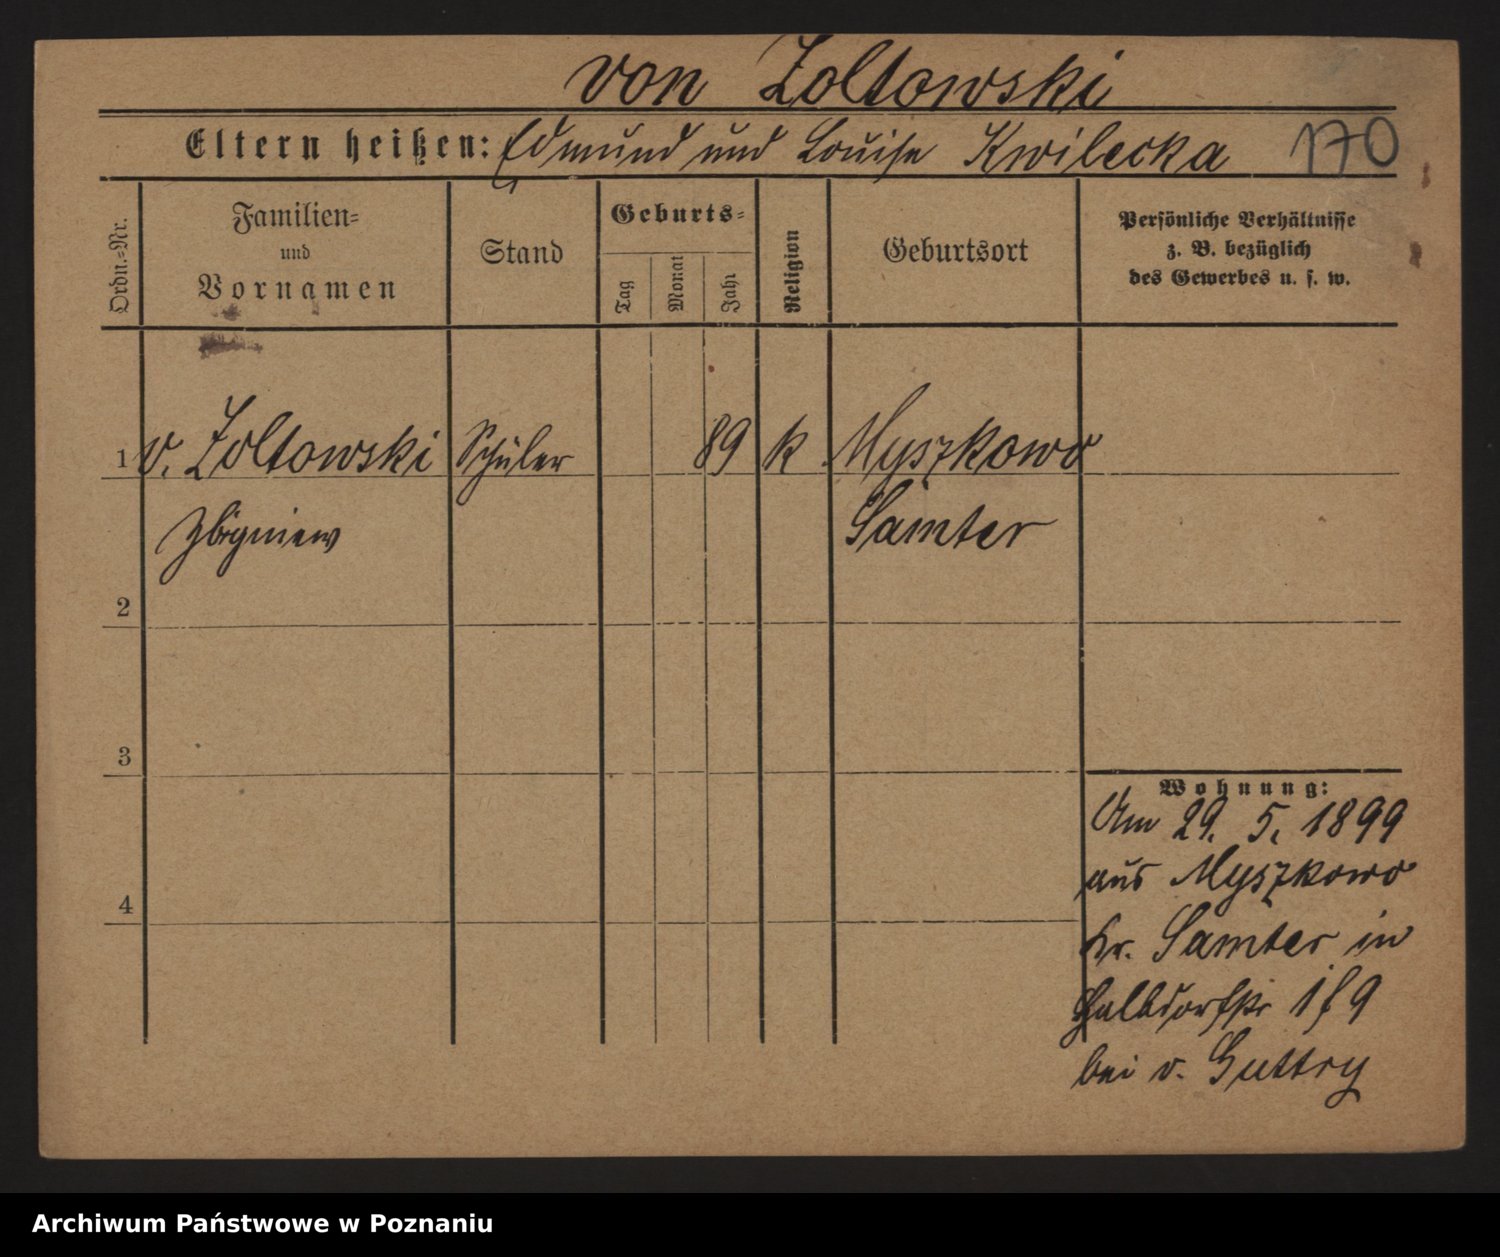 von Zoltowski
Eltern heißen: Edmund und Louise Kwilecka 170
Ordn.-Nr.
Familien=
und
Vornamen
Stand
Geburts=
Tag
Monat
Jahr
Religion
Geburtsort
Persönliche Verhältnisse
z. B. bezüglich
des Gewerbes u. s. w.
1 v. Zoltowski Schüler 89 k Myszkowo
Zbigniew Samter
2
3
Wohnung:
Am 29. 5. 1899
aus Myszkowo
4
Kr. Samter in
Halbdorfstr
bei v. Guttry
Archiwum Państwowe w Poznaniu